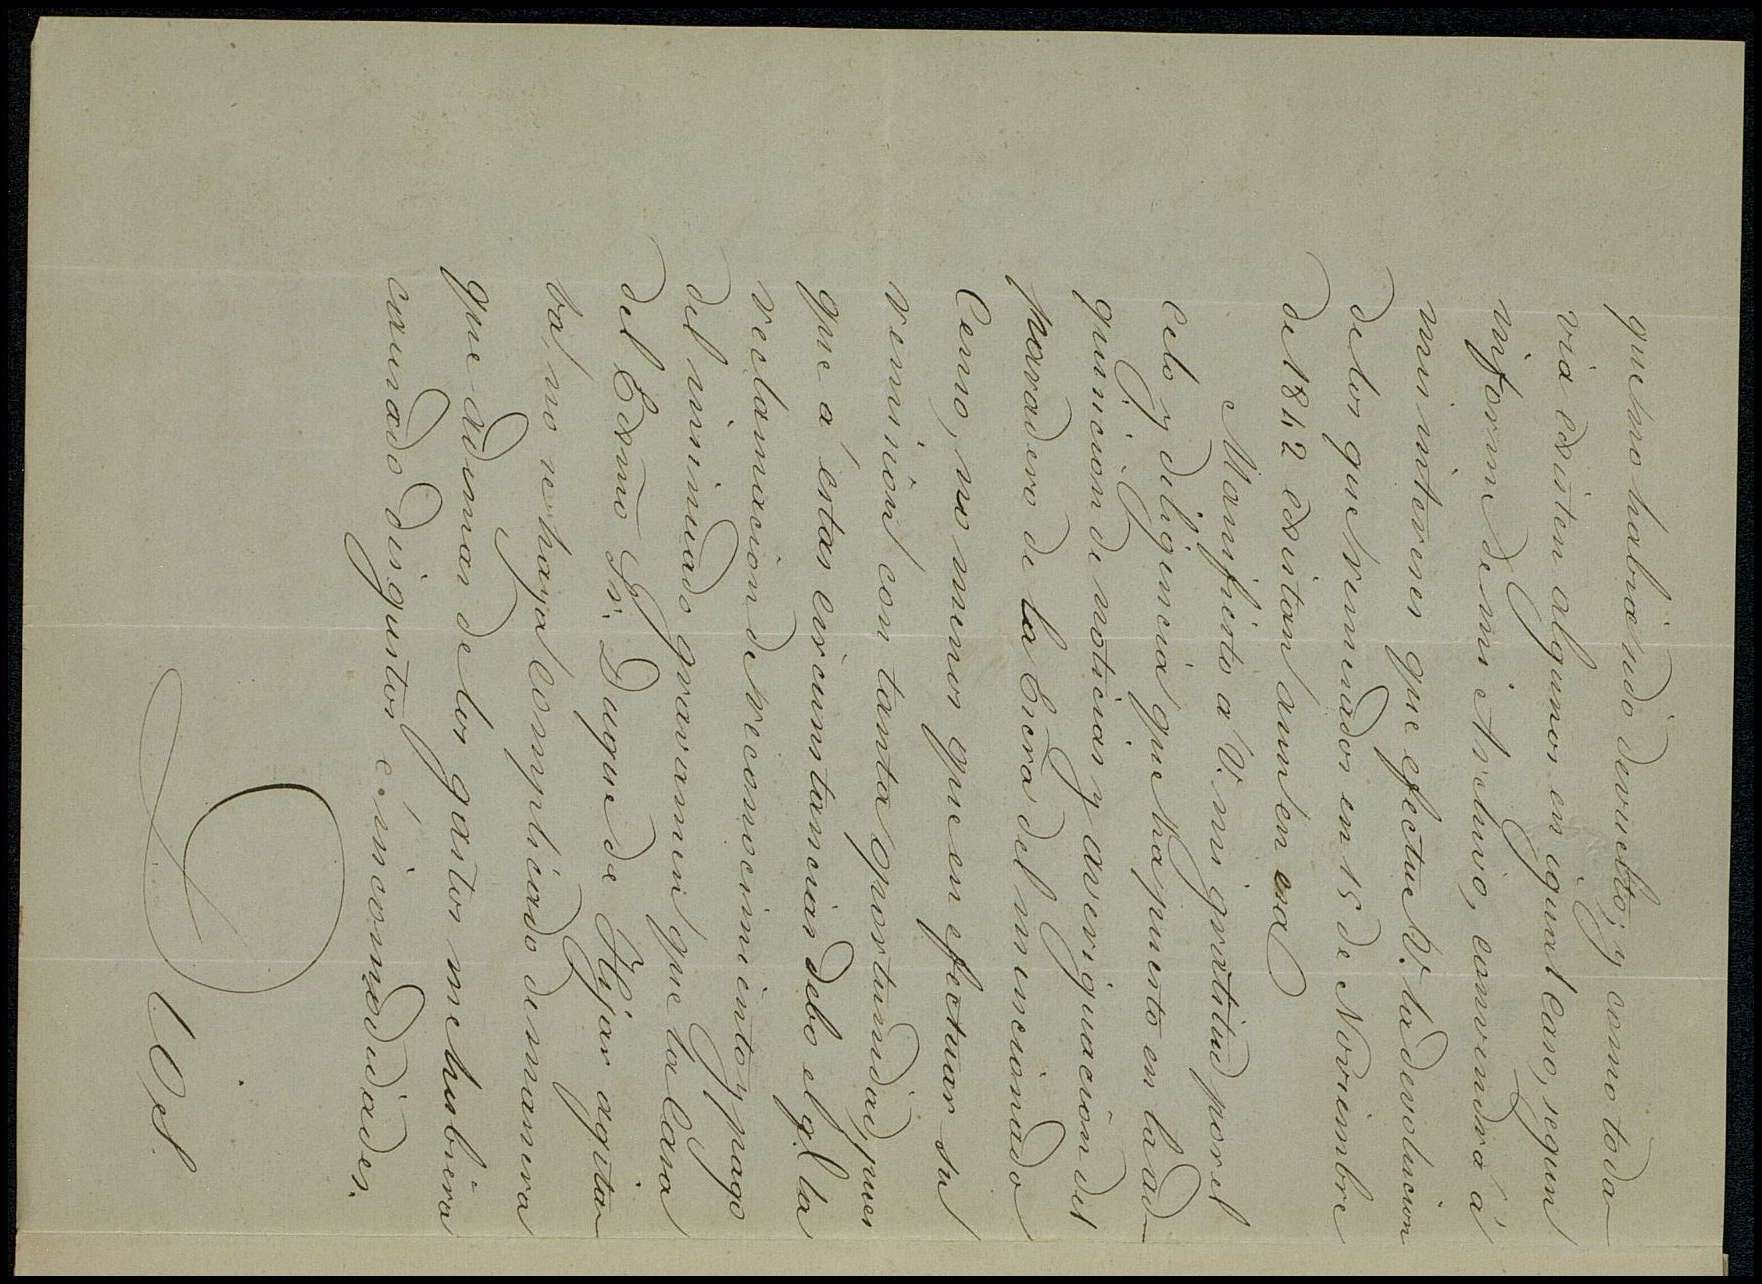 que no habia sido devuelto; y como toda-
via existen algunos en igual caso, segun
informe de mi Archivo, convendrá á
mis intereses que efectue V. la devolucion
de los que remesados en 15 de Noviembre
de 1842 existan aun en esa
Manifiesto a V. mi gratitud por el
celo y diligencia que ha puesto en la ad-
quisicion de noticias y averiguacion del
paradero de la Escra del mencionado
Censo, no menos que en efectuar su
remision con tanta oportunidad, pues
que á estas circunstancias debo el q.e la
reclamacion de reconocimiento y pago
del insinuado gravamen que la Casa
del Exmo Sr. Duque de Hijar agita-
ba, no se haya complicado de manera
que ademas de los gastos me hubiera
causado disgustos e incomodidades.